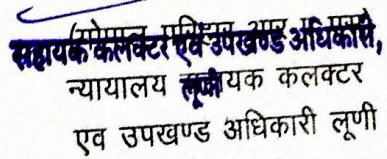 सहायक कलक्टर एवं उपखण्ड अधिकारी,
न्यायालय सहायक कलक्टर
लूणी
एव उपखण्ड अधिकारी लूणी